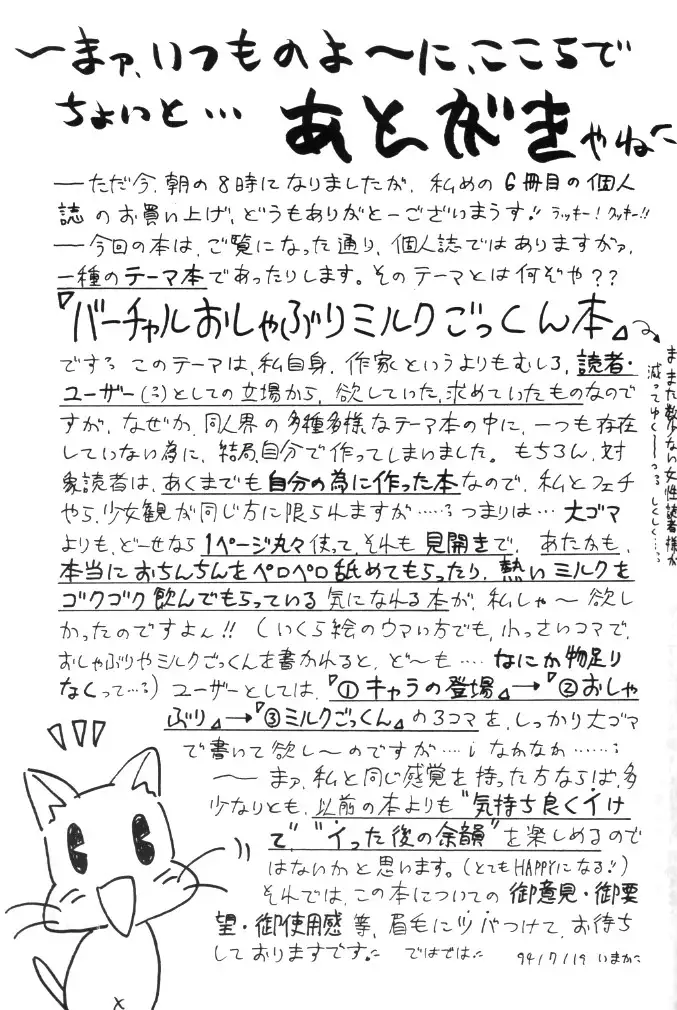 〜まァ、いつものよ〜に、ここらで
ちょいと… あとがきやね
──ただ今、朝の8時になりましたが、私めの6冊目の個人
誌のお買い上げ、どうもありがとーございまうす!! ラッキー!クッキー!!
──今回の本は、ご覧になった通り、個人誌ではありますがァ、
一種のテーマ本であったりします。そのテーマとは何ぞや??
『バーチャルおしゃぶりミルクごっくん本』
です。このテーマは、私自身、作家というよりもむしろ、読者・
ユーザー(:)としての立場から、欲していた、求めていたものなので
すが、なぜか、同人界の多種多様なテーマ本の中に、一つも存在
していない為に、結局、自分で作ってしまいました。もちろん、対
象読者は、あくまでも自分の為に作った本なので、私とフェチ
やら、少女観が同じ方に限られますが……。つまりは…大ゴマ
よりも、どーせなら1ページ丸々使って、それも見開きで、あたかも、
本当におちんちんをペロペロ舐めてもらったり、熱いミルクを
ゴクゴク飲んでもらっている気になれる本が、私しゃ〜欲し
かったのですよん!!(いくら絵のウマい方でも、小っさいコマで、
おしゃぶりやミルクごっくんを書かれると、ど〜も‥‥なにか物足り
なくって…。)ユーザーとしては、『①キャラの登場』→『②おしゃ
ぶり』→『③ミルクごっくん』の3コマを、しっかり大ゴマ
で書いて欲し〜のですが‥‥; なかなか……;
──まァ、私と同じ感覚を持った方ならば、多
少なりとも、以前の本よりも"気持ち良くイけ
て"、"イった後の余韻"を楽しめるので
はないかと思います。(とてもHAPPYになる!!)
それでは、この本についての御意見・御要
望・御使用感 等、眉毛にツバつけて、お待ち
しておりますです。 ではでは
94/7/19 いまかに
ままた数少ない女性読者様が
減ってゆく──つるしくしく…